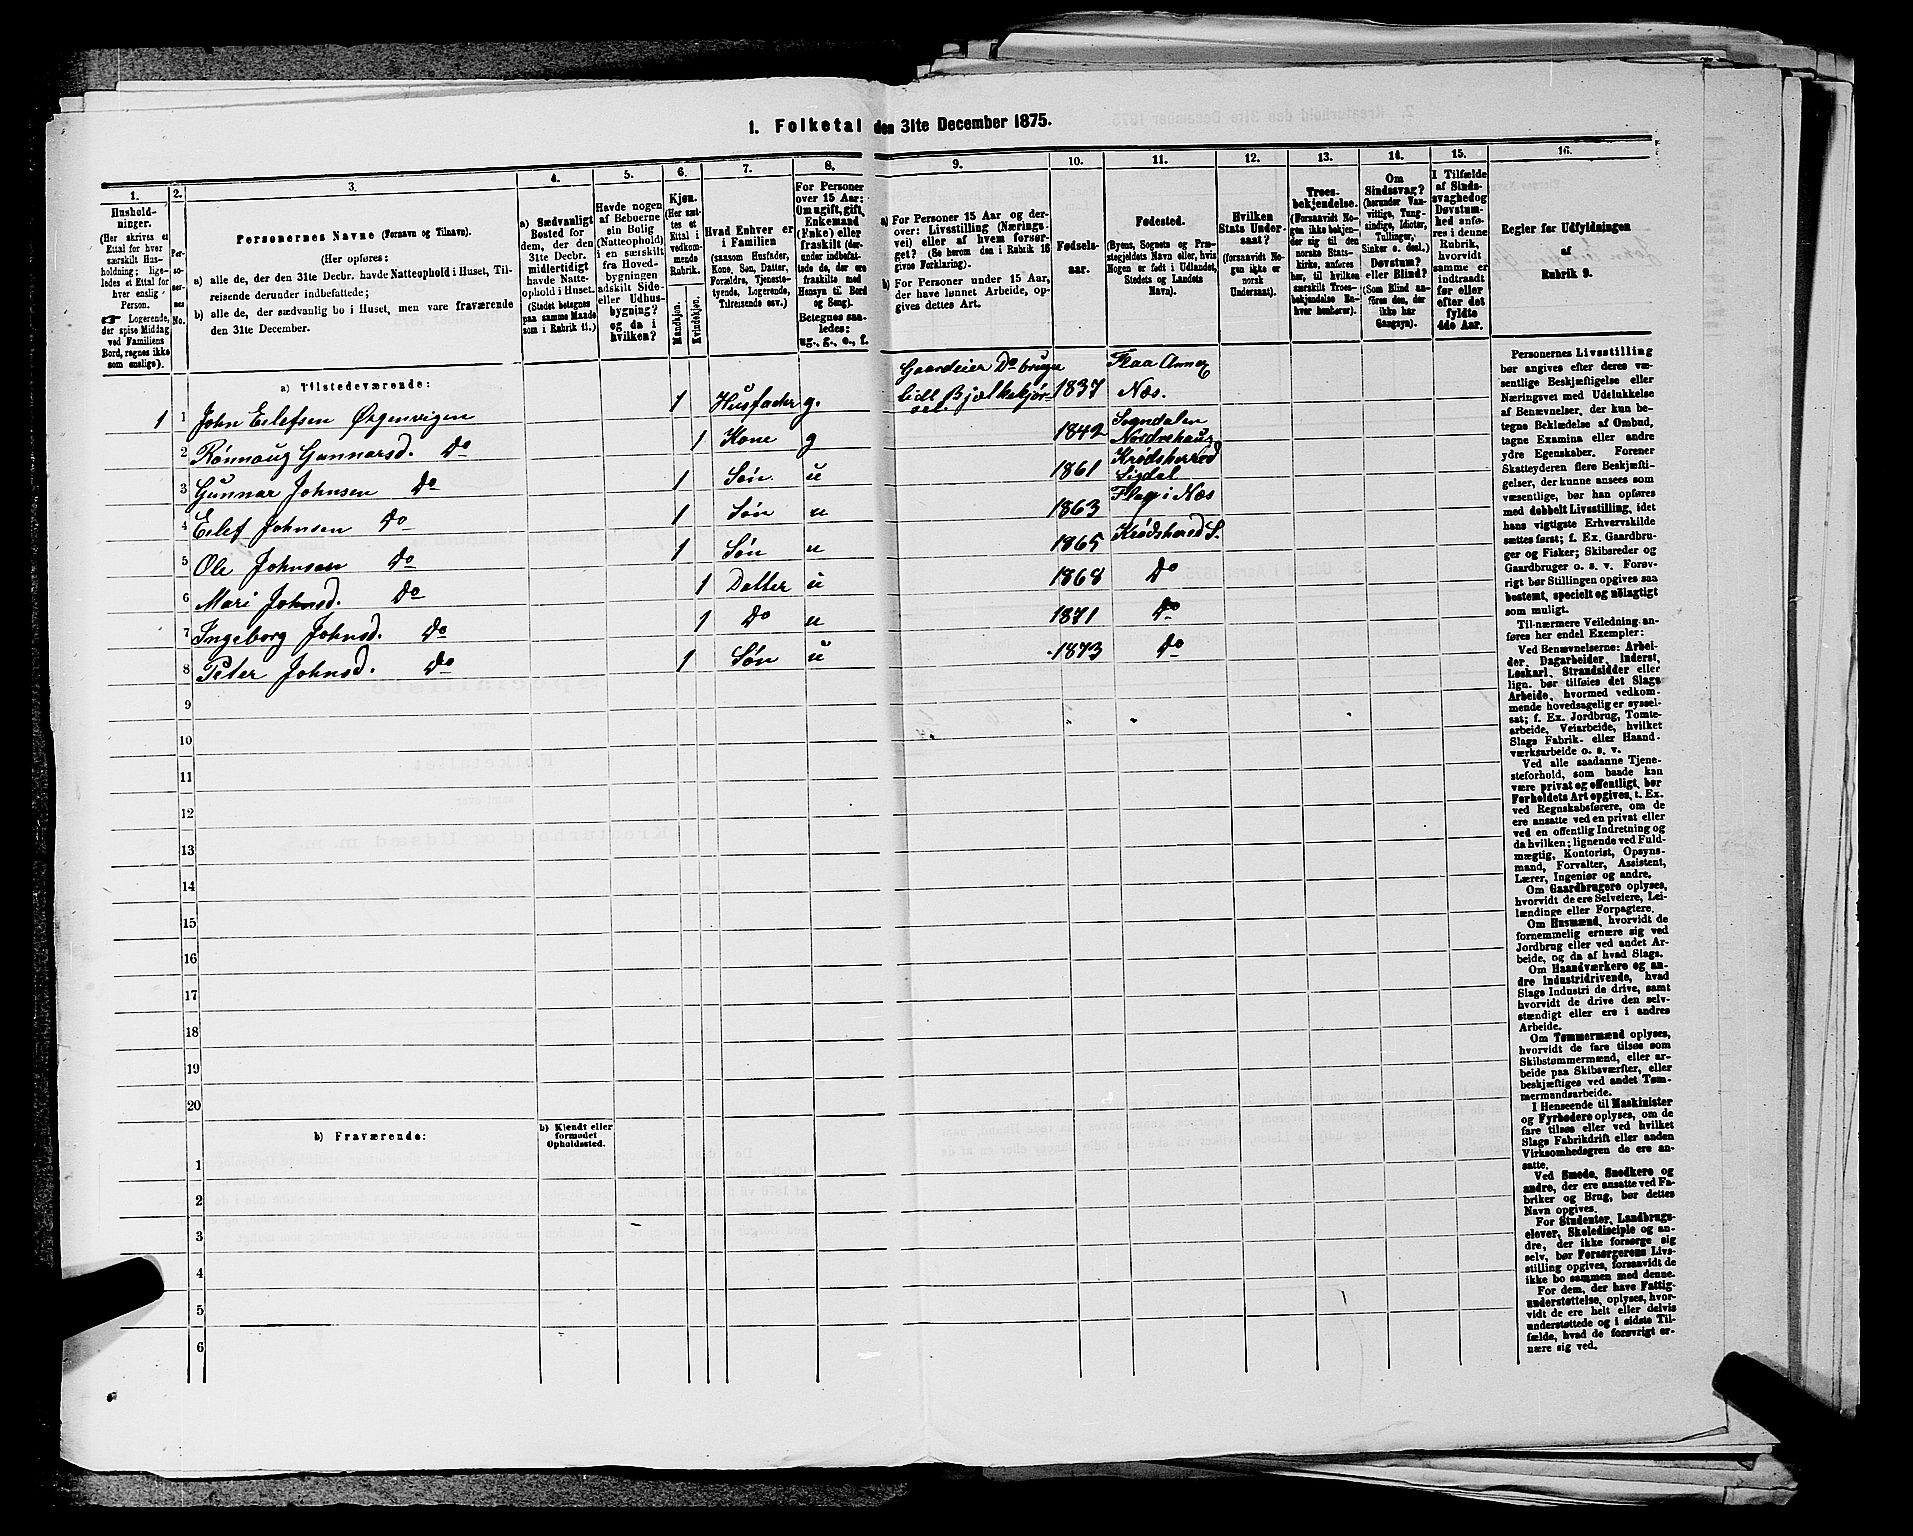 1. Folketal den 31te December 1875.
1.
Hushold-
ninger.
(Her skrives et
Ettal for hver
særskilt Hus-
holdning; lige-
ledes et Ettal for
hver enslig
Person.
☞ Logerende,
der spise Middag
ved Familiens
Bord, regnes ikke
som enslige).
2.
Per-
so-
ner-
nes
No.
3.
Personernes Navne (Fornavn og Tilnavn).
(Her opføres:
a) alle de, der den 31te Decbr. havde Natteophold i Huset, Til-
reisende derunder indbefattede;
b) alle de, der sædvanlig bo i Huset, men vare fraværende
den 31te December.
4.
a) Sædvanligt
Bosted for
dem, der den
31te Decbr.
midlertidigt
havde Natte-
ophold i Huset.
(Stedet betegnes
paa samme Maade
som i Rubrik 11.)
5.
Havde nogen
af Beboerne
sin Bolig
(Natteophold)
i en særskilt
fra Hoved-
bygningen
adskilt Side-
eller Udhus-
bygning?
og da i
hvilken?
6.
Kjøn.
(Her sæt-
tes et
Ettal i
vedkom-
mende
Rubrik.
Mandkjøn.
Kvindekjøn.
7.
Hvad Enhver er
i Familien
(saasom Husfader,
Kone, Søn, Datter,
Forældre, Tjeneste-
tyende, Logerende,
Tilreisende osv.)
8.
For Personer
over 15 Aar:
Om ugift, gift,
Enkemand
(Enke) eller
fraskilt (der-
under indbefat-
tede de, der ere
fraskilte med
Hensyn til Bord
og Seng).
Betegnes saa-
ledes:
ug., g., e., f.
9.
a) For Personer 15 Aar og der-
over: Livsstilling (Nærings-
vei) eller af hvem forsør-
get? (Se herom den i Rubrik 16
givne Forklaring).
b) For Personer under 15 Aar,
der have lønnet Arbeide, op-
gives dettes Art.
10.
Fødsels-
aar.
11.
Fødested.
(Byens, Sognets og Præ-
stegjeldets Navn eller, hvis
Nogen er født i Udlandet,
Stedets og Landets
Navn).
12.
Hvilken
Stats Under-
saat?
(forsaavidt No-
gen ikke er
norsk
Undersaat).
13.
Troes-
bekjendelse.
(Forsaavidt No-
gen ikke bekjen-
der sig til den
norske Stats-
kirke, anføres
her, til hvilken
særskilt Troes-
bekjendelse En-
hver henhører).
14.
Om
Sindssvag?
(herunder Van-
vittige, Tung-
sindige, Idioter,
Tullinger,
Sinker o. desl.)
Døvstum?
eller Blind?
(Som Blind an-
føres den, der
ikke har
Gangsyn).
15.
I Tilfælde
af Sinds-
svaghed og
Døvstum-
hed anfø-
res i denne
Rubrik,
hvorvidt
samme er
indtraadt
før eller
efter det
fyldte
4de Aar.
16.
Regler for Udfyldningen
af
Rubrik 9.
a) Tilstedeværende:
1 1 John Eilefsen Ørgenvigen 1 Husfader g. Gaardeier Do bruger lidt Bjælkekjørsel. 1837 Flaa Annex Næs.
2 Rönnaug Gunnarsd. Do 1 Kone g 1842 Sogndalen Nordrehaug
3 Gunnar Johnsen Do 1 Søn u 1861 Krødsherred Sigdal
4 Eilef Johnsen Do 1 Søn u 1863 Flaa i Næs
5 Ole Johnsen Do 1 Søn u 1865 Krødsherod S.
6 Mari Johnsd. Do 1 Datter u 1868 Do
7 Ingeborg Johnsd. Do 1 Do u 1871 Do
8 Peter Johnsd. Do 1 Søn u 1873 Do
9
10
11
12
13
14
15
16
17
18
19
20
b) Fraværende:
b) Kjendt eller
formodet
Opholdssted.
1
2
3
4
5
6
Personernes Livsstilling
bør angives efter deres væ-
sentlige Beskjæftigelse eller
Næringsvei med Udelukkelse
af Benævnelser, der kun be-
tegne Beklædelse af Ombud,
tagne Examina eller andre
ydre Egenskaber. Forener
Skatteyderen flere Beskjæfti-
gelser, der kunne ansees som
væsentlige, bør han opføres
med dobbelt Livsstilling, idet
hans vigtigste Erhvervskilde
sættes først; f. Ex. Gaardbru-
ger og Fisker; Skibsreder og
Gaardbruger o. s. v. Forøv-
rigt bør Stillingen opgives saa
bestemt, specielt og nöiagtigt
som muligt.
Til nærmere Veiledning an-
føres her endel Exempler:
Ved Benævnelserne: Arbei-
der, Dagarbeider, Inderst,
Løskarl, Strandsidder eller
lign. bør tilføies det Slags
Arbeide, hvormed vedkom-
mende hovedsagelig er syssel-
sat; f. Ex. Jordbrug, Tomte-
arbeide, Veiarbeide, hvilket
Slags Fabrik- eller Haand-
værksarbeide o. s. v.
Ved alle saadanne Tjene-
steforhold, som baade kan
være privat og offentligt, bør
Forholdets Art opgives, t. Ex.
ved Regnskabsførere, om de
ere ansatte ved en privat eller
ved en offentlig Indretning og
da hvilken; lignende ved Fuld-
mægtig, Kontorist, Opsyns-
mand, Forvalter, Assistent,
Lærer, Ingeniør og andre.
Om Gaardbrugere oplyses,
hvorvidt de ere Selveiere, Lei-
lændinge eller Forpagtere.
Om Husmænd, hvorvidt de
fornemmelig ernære sig ved
Jordbrug eller ved andet Ar-
beide, og da af hvad Slags.
Om Haandværkere og an-
dre Industridrivende, hvad
Slags Industri de drive, samt
hvorvidt de drive den selv-
stændigt eller ere i andres
Arbeide.
Om Tømmermænd oplyses,
hvorvidt de fare tilsøs som
Skibstømmermænd, eller ar-
beide paa Skibsværfter, eller
beskjæftiges ved andet Tøm-
mermandsarbeide.
I Henseende til Maskinister
og Fyrbødere oplyses, om de
fare tilsøs eller ved hvilket
Slags Fabrikdrift eller anden
Virksomhedsgren de ere an-
satte.
Ved Smede, Snedkere og
andre, der ere ansatte ved Fa-
briker og Brug, bør dettes
Navn opgives.
For Studenter, Landbrugs-
elever, Skoledisciple og an-
dre, der ikke forsørge sig
selv, bør Forsørgerens Livs-
stilling opgives, forsaavidt de
ikke bo sammen med denne.
For dem, der have Fattig-
understøttelse, oplyses, hvor-
vidt de ere helt eller delvis
understøttede og i sidste Til-
fælde, hvad de forøvrigt er-
nære sig ved.